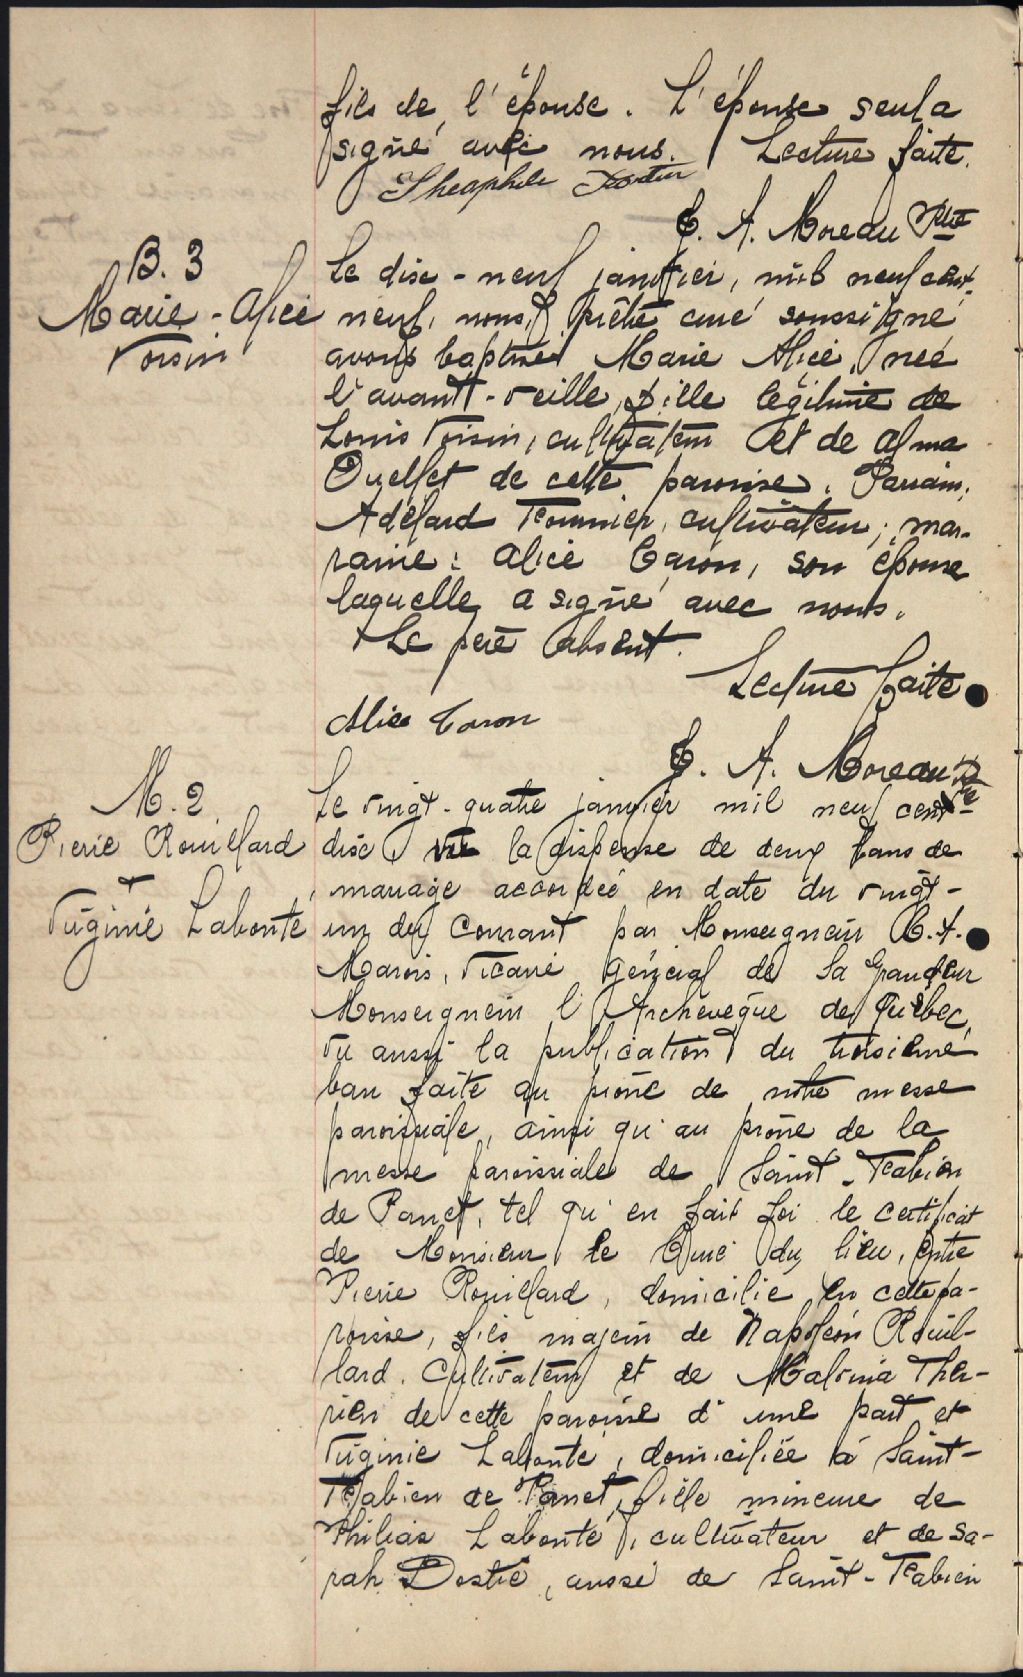 fils de l'épouse. L'épouse seul a
signé avec nous. Lecture faite.
Théophile
E. A. Moreau Ptre
B. 3
Marie-Alice
Voisin
Le dixe-neuf janvier, mil neuf cent
neuf, nous, prêtre curé soussigné
avons baptisé Marie Alice, née
l'avant-veille, fille légitime de
Louis Voisin, cultivateur et de Alma
Ouellet de cette paroisse. Parrain,
Adélard Fournier, cultivateur; mar-
raine: Alice Caron, son épouse
laquelle a signé avec nous.
Le père absent.
Lecture faite
Alice Caron
E. A. Moreau Ptre
M. 2
Pierre Rouillard
et
Virginie Labonté
Le vingt-quatre janvier mil neuf cent
dixe, vu la dispense de deux bans de
mariage accordée en date du vingt-
un du courant par Monseigneur C. A.
Marois, vicaire général de Sa Grandeur
Monseigneur l'Archevêque de Québec,
vu aussi la publication du troisième
ban faite au prône de notre messe
paroissiale, ainsi qu'au prône de la
messe paroissiale de Saint-Fabien
de Panet, tel qu'en fait foi le certificat
de Monsieur le Curé du lieu, entre
Pierre Rouillard, domicilié en cette pa-
roisse, fils majeur de Napoléon Rouil-
lard, cultivateur et de Malvina Ther-
rien de cette paroisse d'une part et
Virginie Labonté, domiciliée à Saint-
Fabien de Panet, fille mineure de
Philias Labonté, cultivateur et de Sa-
rah Dostie, aussi de Saint-Fabien